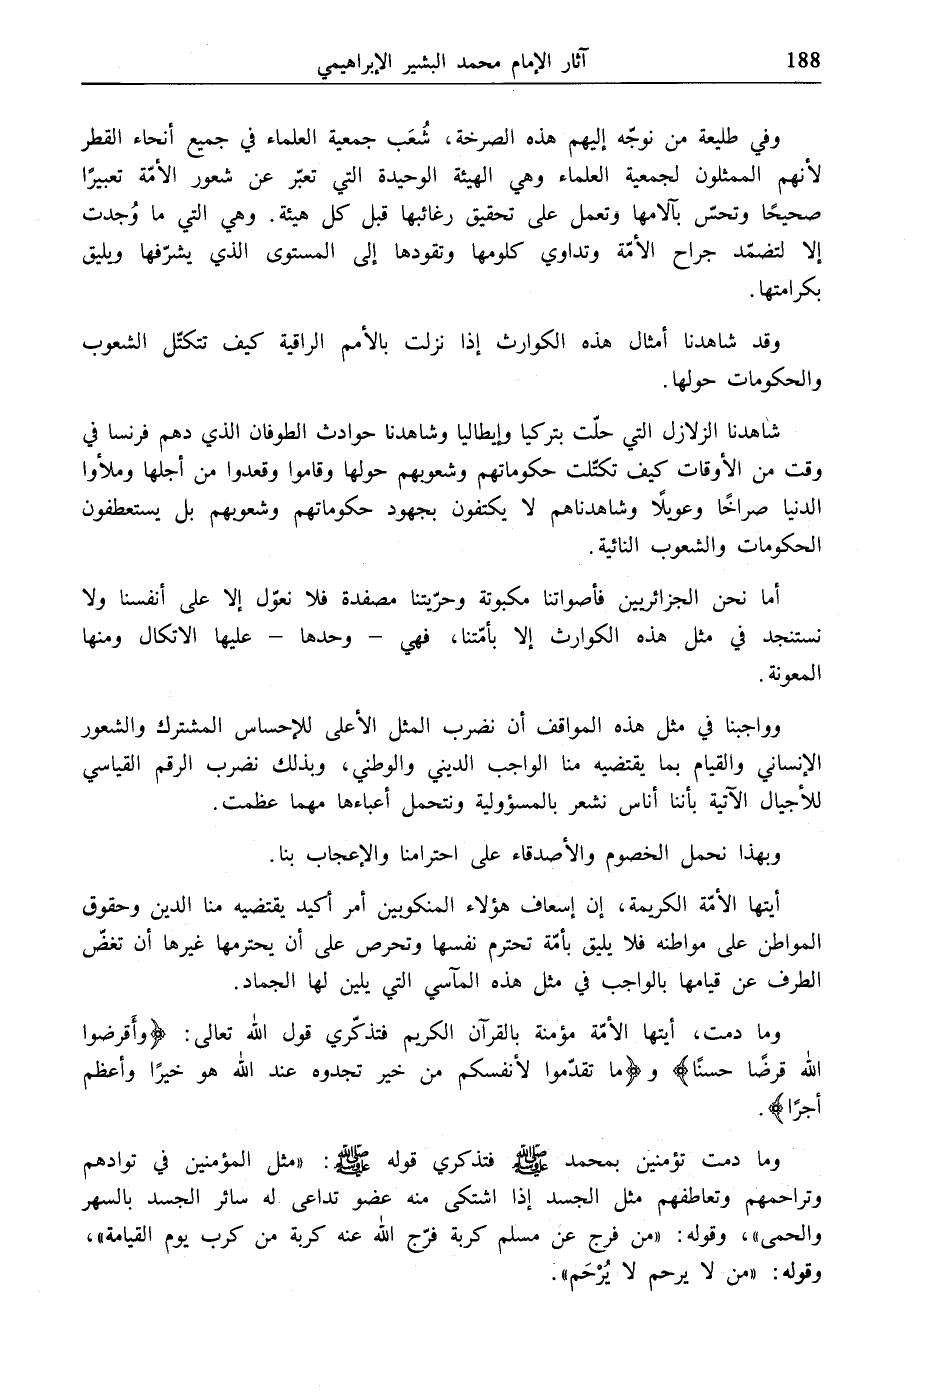 188 آثار الإمام محمد البشير الإبراهيمي
وفي طليعة من نوجّه إليهم هذه الصرخة، شُعَب جمعية العلماء في جميع أنحاء القطر
لأنهم الممثلون لجمعية العلماء وهي الهيئة الوحيدة التي تعبّر عن شعور الأمّة تعبيرًا
صحيحًا وتحسّ بآلامها وتعمل على تحقيق رغائبها قبل كل هيئة. وهي التي ما وُجدت
إلا لتضمّد جراح الأمّة وتداوي كلومها وتقودها إلى المستوى الذي يشرّفها ويليق
بكرامتها.
وقد شاهدنا أمثال هذه الكوارث إذا نزلت بالأمم الراقية كيف تتكتّل الشعوب
والحكومات حولها.
شاهدنا الزلازل التي حلّت بتركيا وإيطاليا وشاهدنا حوادث الطوفان الذي دهم فرنسا في
وقت من الأوقات كيف تكتّلت حكوماتهم وشعوبهم حولها وقاموا وقعدوا من أجلها وملأوا
الدنيا صراخًا وعويلًا وشاهدناهم لا يكتفون بجهود حكوماتهم وشعوبهم بل يستعطفون
الحكومات والشعوب النائية.
أما نحن الجزائريين فأصواتنا مكبوتة وحرّيتنا مصفدة فلا نعوّل إلا على أنفسنا ولا
نستنجد في مثل هذه الكوارث إلا بأمّتنا، فهي – وحدها – عليها الاتكال ومنها
المعونة.
وواجبنا في مثل هذه المواقف أن نضرب المثل الأعلى للإحساس المشترك والشعور
الإنساني والقيام بما يقتضيه منا الواجب الديني والوطني، وبذلك نضرب الرقم القياسي
للأجيال الآتية بأننا أناس نشعر بالمسؤولية ونتحمل أعباءها مهما عظمت.
وبهذا نحمل الخصوم والأصدقاء على احترامنا والإعجاب بنا.
أيتها الأمّة الكريمة، إن إسعاف هؤلاء المنكوبين أمر أكيد يقتضيه منا الدين وحقوق
المواطن على مواطنه فلا يليق بأمّة تحترم نفسها وتحرص على أن يحترمها غيرها أن تغضّ
الطرف عن قيامها بالواجب في مثل هذه المآسي التي يلين لها الجماد.
وما دمت، أيتها الأمّة مؤمنة بالقرآن الكريم فتذكّري قول الله تعالى: ﴿وأَقرضوا
الله قرضًا حسنًا﴾ و﴿ما تقدّموا لأنفسكم من خير تجدوه عند الله هو خيرًا وأعظم
أجرًا﴾.
وما دمت تؤمنين بمحمد ﷺ فتذكري قوله ﷺ: «مثل المؤمنين في توادهم
وتراحمهم وتعاطفهم مثل الجسد إذا اشتكى منه عضو تداعى له سائر الجسد بالسهر
والحمى»، وقوله: «من فرج عن مسلم كربة فرّج الله عنه كربة من كرب يوم القيامة»،
وقوله: «من لا يرحم لا يُرْحَم».